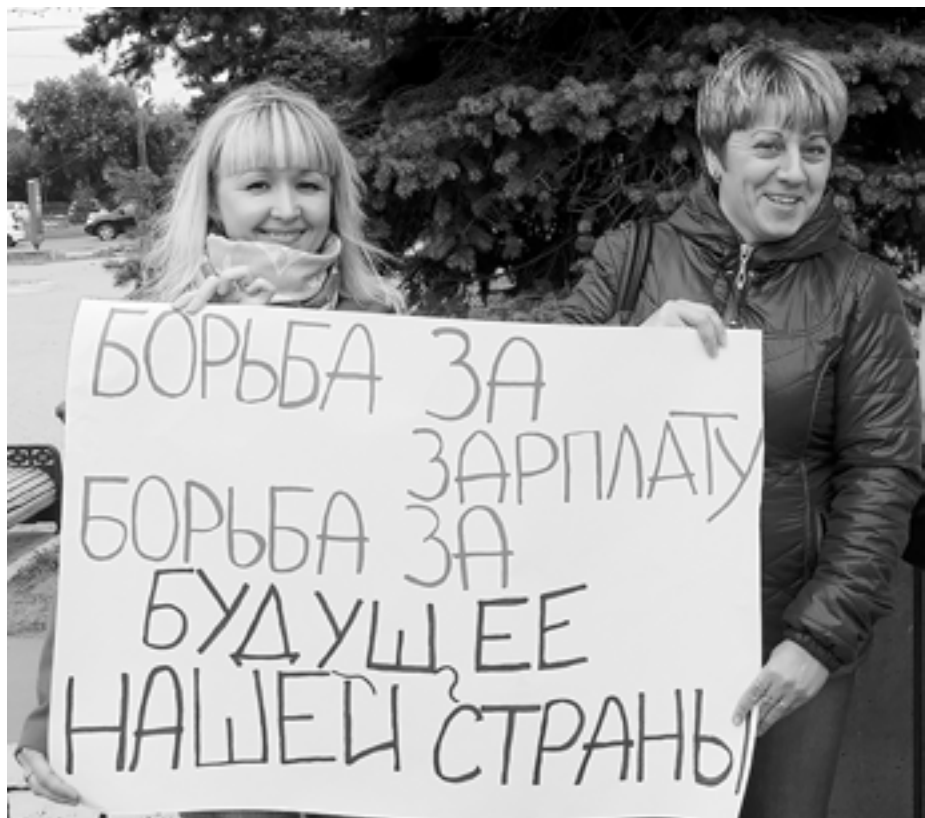 БОРЬБА ЗА
ЗАРПЛАТУ
БОРЬБА ЗА
БУДУЩЕЕ
НАШЕЙ СТРАНЫ